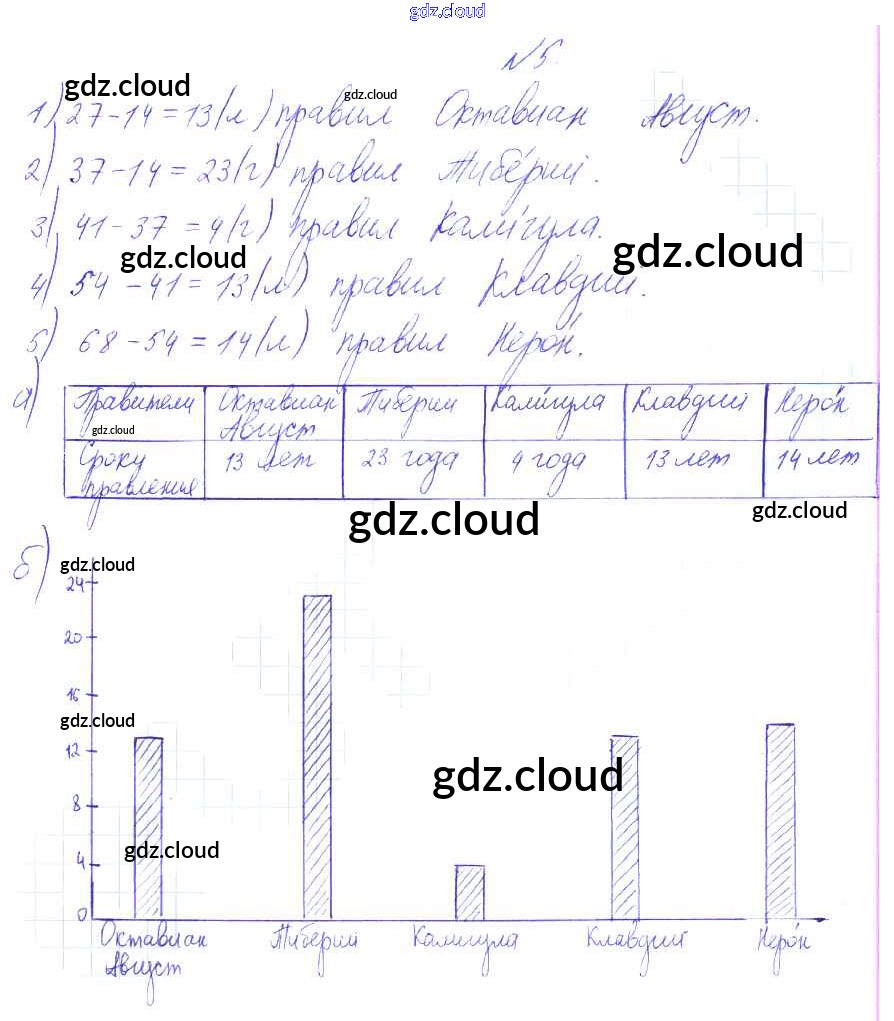 gdz.cloud
№5.
gdz.cloud
gdz.cloud
1) 27-14=13(л) правил Октавиан Август.
2) 37-14=23(г) правил Тибе́рий.
3) 41-37=4(г) правил Кали́гула.
gdz.cloud
gdz.cloud
4) 54-41=13(л) правил Клавдий.
5) 68-54=14(л) правил Неро́н.
а)
Правители Октавиан Август Тиберий Кали́гула Клавдий Неро́н
gdz.cloud
Сроку правления 13 лет 23 года 4 года 13 лет 14 лет
gdz.cloud
gdz.cloud
б)
gdz.cloud
24
20
16
gdz.cloud
12
gdz.cloud
8
gdz.cloud
4
0
Октавиан Август Тиберий Калигула Клавдий Неро́н